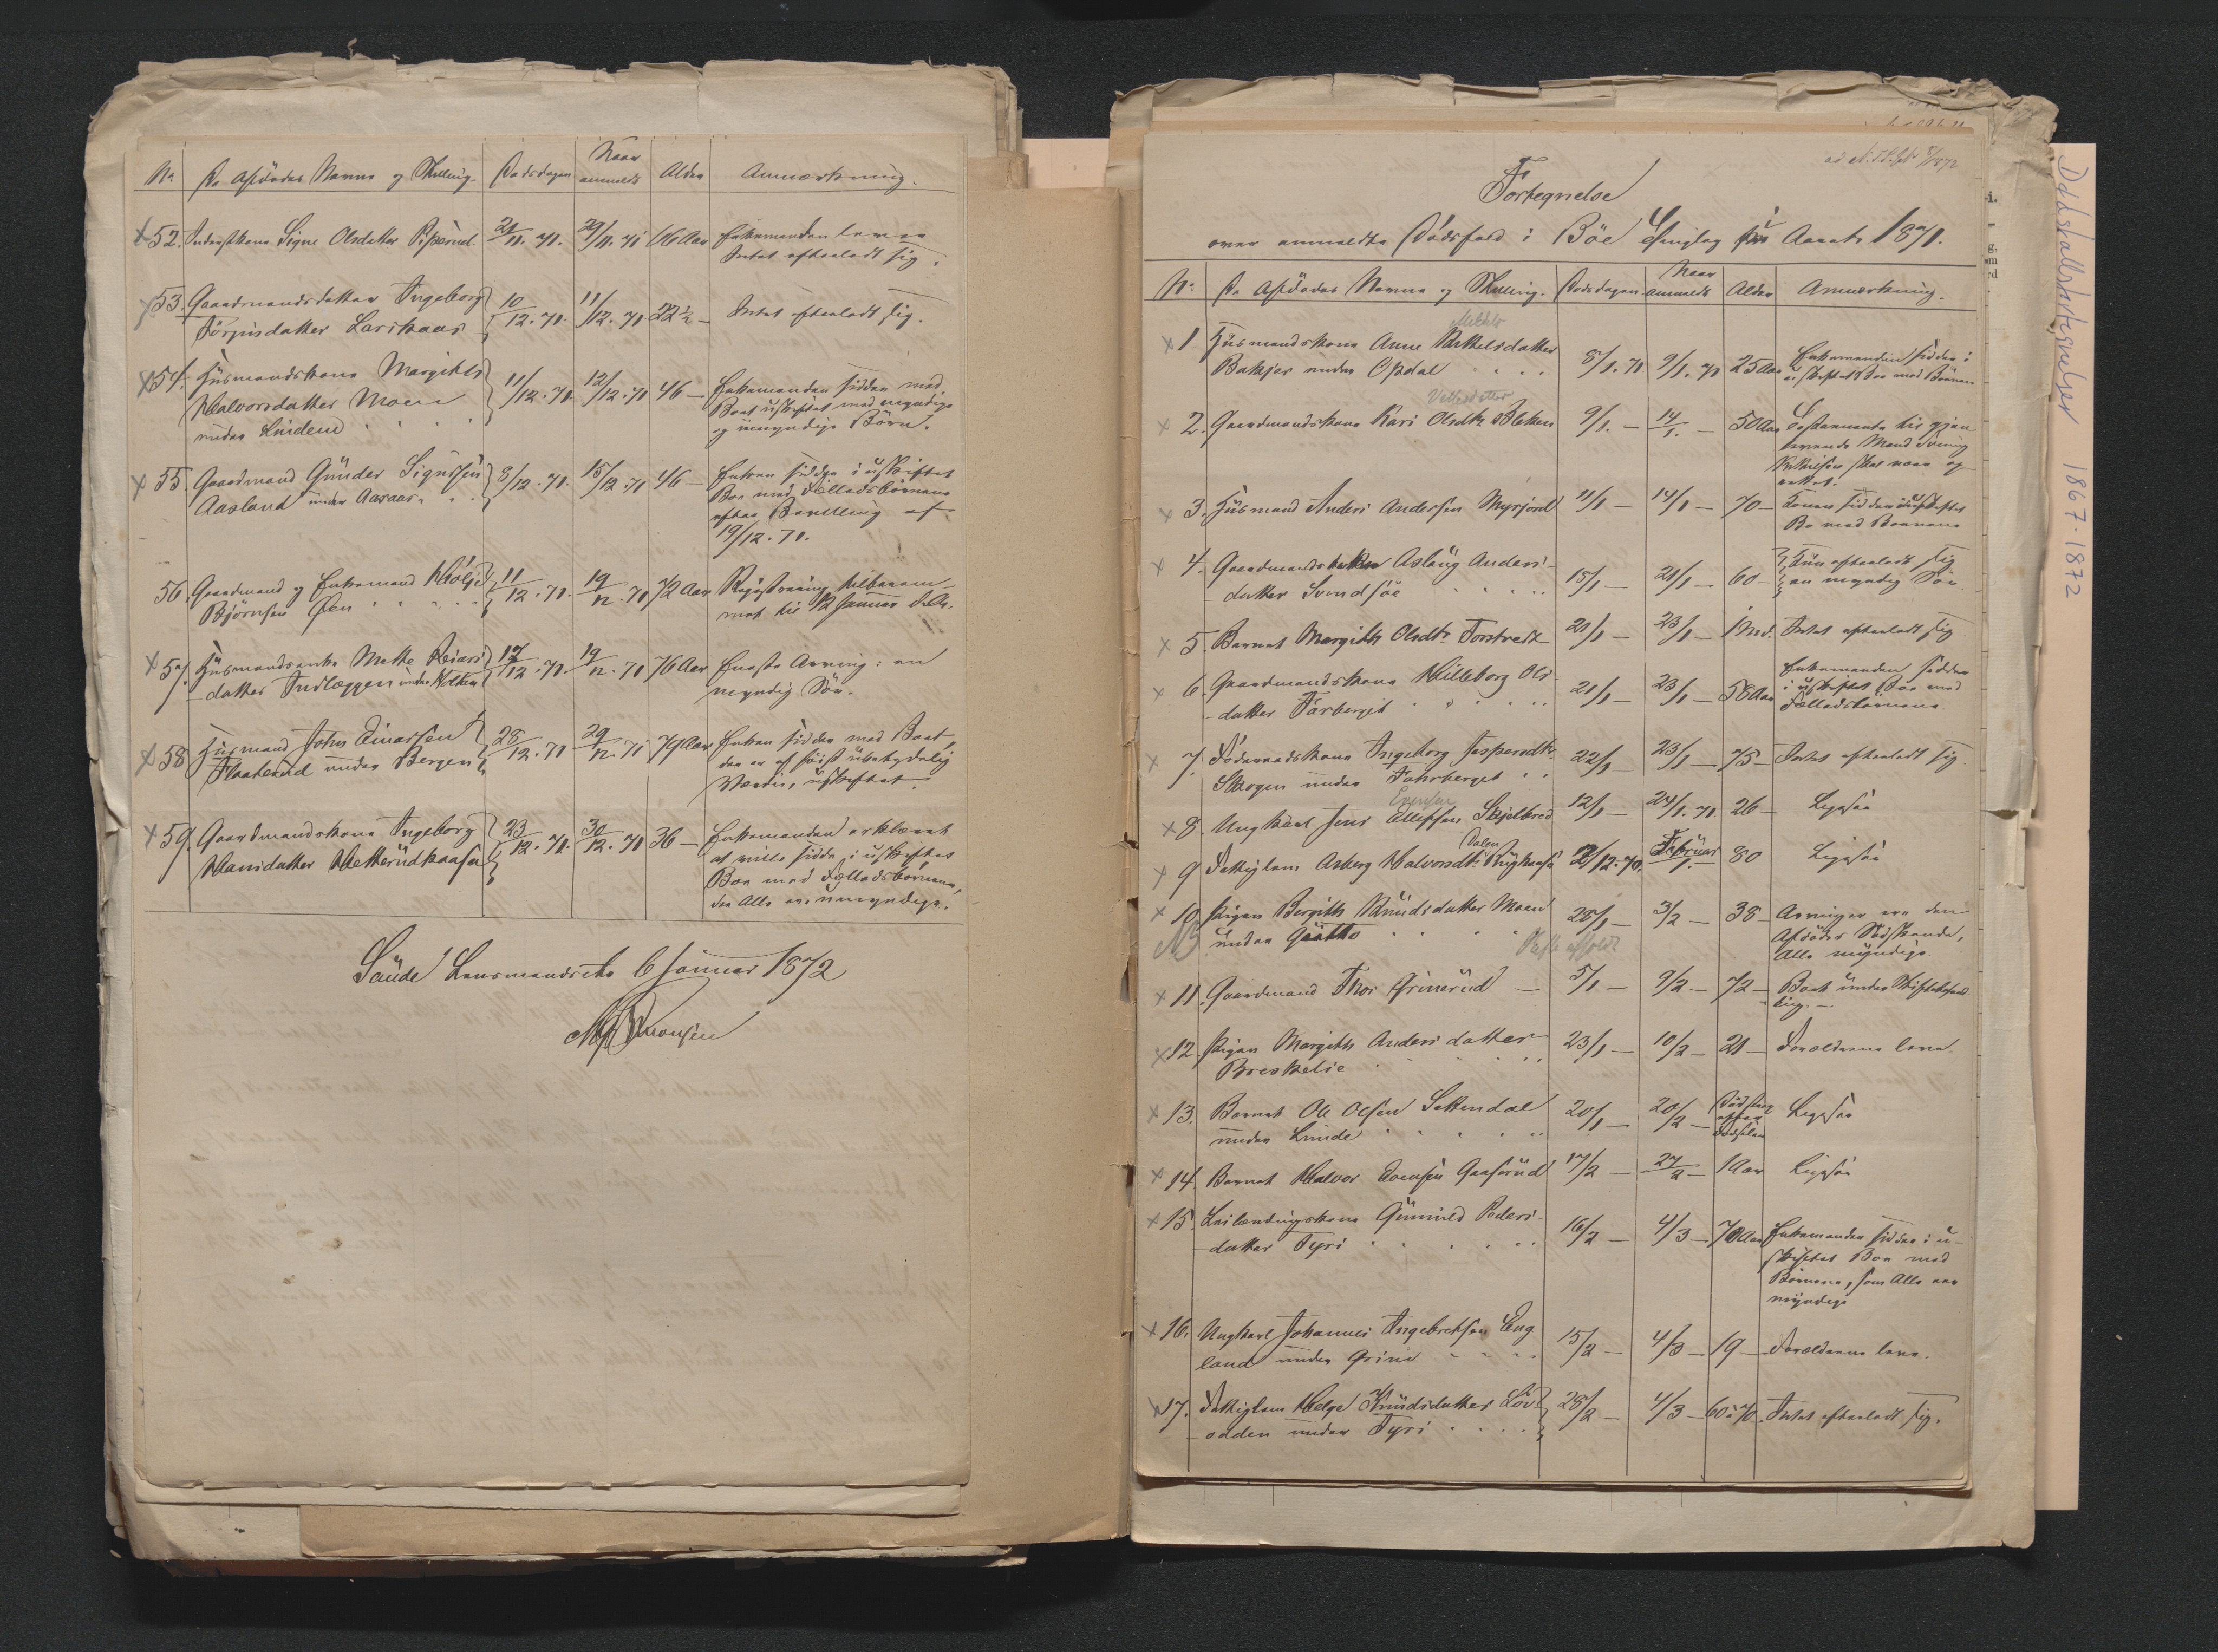 No De Afdødes Navne og Stilling. Dødsdagen Naar anmeldt Alder Anmærkning.
52. Inderstkone Signe Olsdatter Piperud. 21/11. 71. 29/11. 71 66 Aar Enkemanden lever
Intet efterladt sig.
53. Gaardmandsdatter Ingeborg 10/12. 71. 11/12. 71. 22 1/2 — Intet efterladt sig.
Torgrimsdatter
54. Husmandskone Margithe 11/12. 71. 12/12. 71 46 — Enkemanden sidder med
Halvorsdatter Moen Boet uskiftet med myndige
under Lindem og umyndige Børn.
55. Gaardmand Gunder Sigurdsen 8/12. 71. 15/12. 71 46 — Enken sidder i uskiftet
Aasland under Aasaas Boe med Fælledsbørnene
efter Bevilling af
19/12. 71.
56. Gaardmand og Enkemand Kittil 11/12. 71. 19/12. 71 72 Aar Registrering
Bjørnsen Øen met til 12 Januar d. A.
57. Husmandsenke Mette 17/12. 71. 19/12. 71 76 Aar Eneste Arving: en
datter Indlæggen under myndig Søn.
58. Husmand John Einarsen 28/12. 71 29/12. 71 79 Aar Enken sidder med Boet,
Flaaterud under Bergen der er af høist ubetydelig
Værdi, uskiftet.
59. Gaardmandskone Ingeborg 23/12. 71. 30/12. 71 36 — Enkemanden erklæret
Hansdatter at ville sidde i uskiftet
Boe med Fælledsbørnene,
der Alle ere umyndige.
Saude Lensmandsets 6 Januar 1872
Dødsfallsfortegnelser 1867-1872
Fortegnelse
over anmeldte Dødsfald i Böe Thinglag i Aaret 1871.
No De Afdødes Navne og Stilling. Dødsdagen Naar anmeldt Alder Anmærkning.
1. Husmandskone Anne Mikkelsdatter
Bakjer under Opdal 8/1. 71 9/1. 71 25 Aar Enkemanden sidder i
uskiftet Boe med Børnene
2. Gaardmandskone Kari Olsdtr. Bleken 9/1. — 14/1. — 50 Aar Testamente til gjen
levende Mand
skal være op
rettet.
3. Husmand Anders Andersen Myrjord 11/1 — 14/1 — 70 — Konen sidder i uskiftet
Bo med Børnene
4. Aslaug Anders- Kun efterladt sig
datter Svindsöe 15/1 — 21/1 — 60 — en myndig Søn
5. Barnet Margith Olsdtr. Forstvedt 21/1 — 23/1 — 1 Md. Intet efterladt sig
6. Gaardmandskone Hilleborg Ols- Enkemanden sidder
datter Farberget 21/1 — 23/1 — 58 Aar i uskiftet Boe med
Fælledsbørnene
7. Føderaadskone Ingeborg Jespersdtr. 22/1 — 23/1 — 75 — Intet efterladt sig.
Skogen under Fahrberget
8. Ungkarl Jens Ellefsen Skjelbred 12/1 — 24/1. 71 26 — Ligesaa
9. Fattiglem Asberg Halvorsdtr. 2/12. 70. Februar 80 Ligesaa
10. Pigen Bergith Knudsdatter Moen 28/1 — 3/2 — 38 — Arvinger ere den
under Afdødes Sødskende,
Alle myndige.
11. Gaardmand Thor Grinerud — 5/1 — 9/2 — 72 — Boet under Skiftebehand
ling. —
12. Pigen Margith Andersdatter 23/1 — 10/2 — 21 — Forældrene leve.
Breskelie
13. Barnet Ole Olsen Settendal 20/1 — 20/2 — Død strax efter Fødselen Ligesaa
under Lunde
14. Barnet Halvor Evensen Gaaserud 17/2 — 27/2 — 1 Aar Ligesaa
15. Leilendingskone Gunnild Peders-
datter Tyri 16/2 — 4/3 — 78 Aar Enkemanden sidder i u-
skiftet Boe med
Børnene, som Alle ere
myndige
16. Ungkarl Johannes Ingebretsen Eng
land under Grini 15/2 — 4/3 — 19 — Forældrene leve.
17. Fattiglem Helge Knudsdatter Löv-
odden under Tyri 28/2 — 4/3 — 60 à 70 Intet efterladt sig.